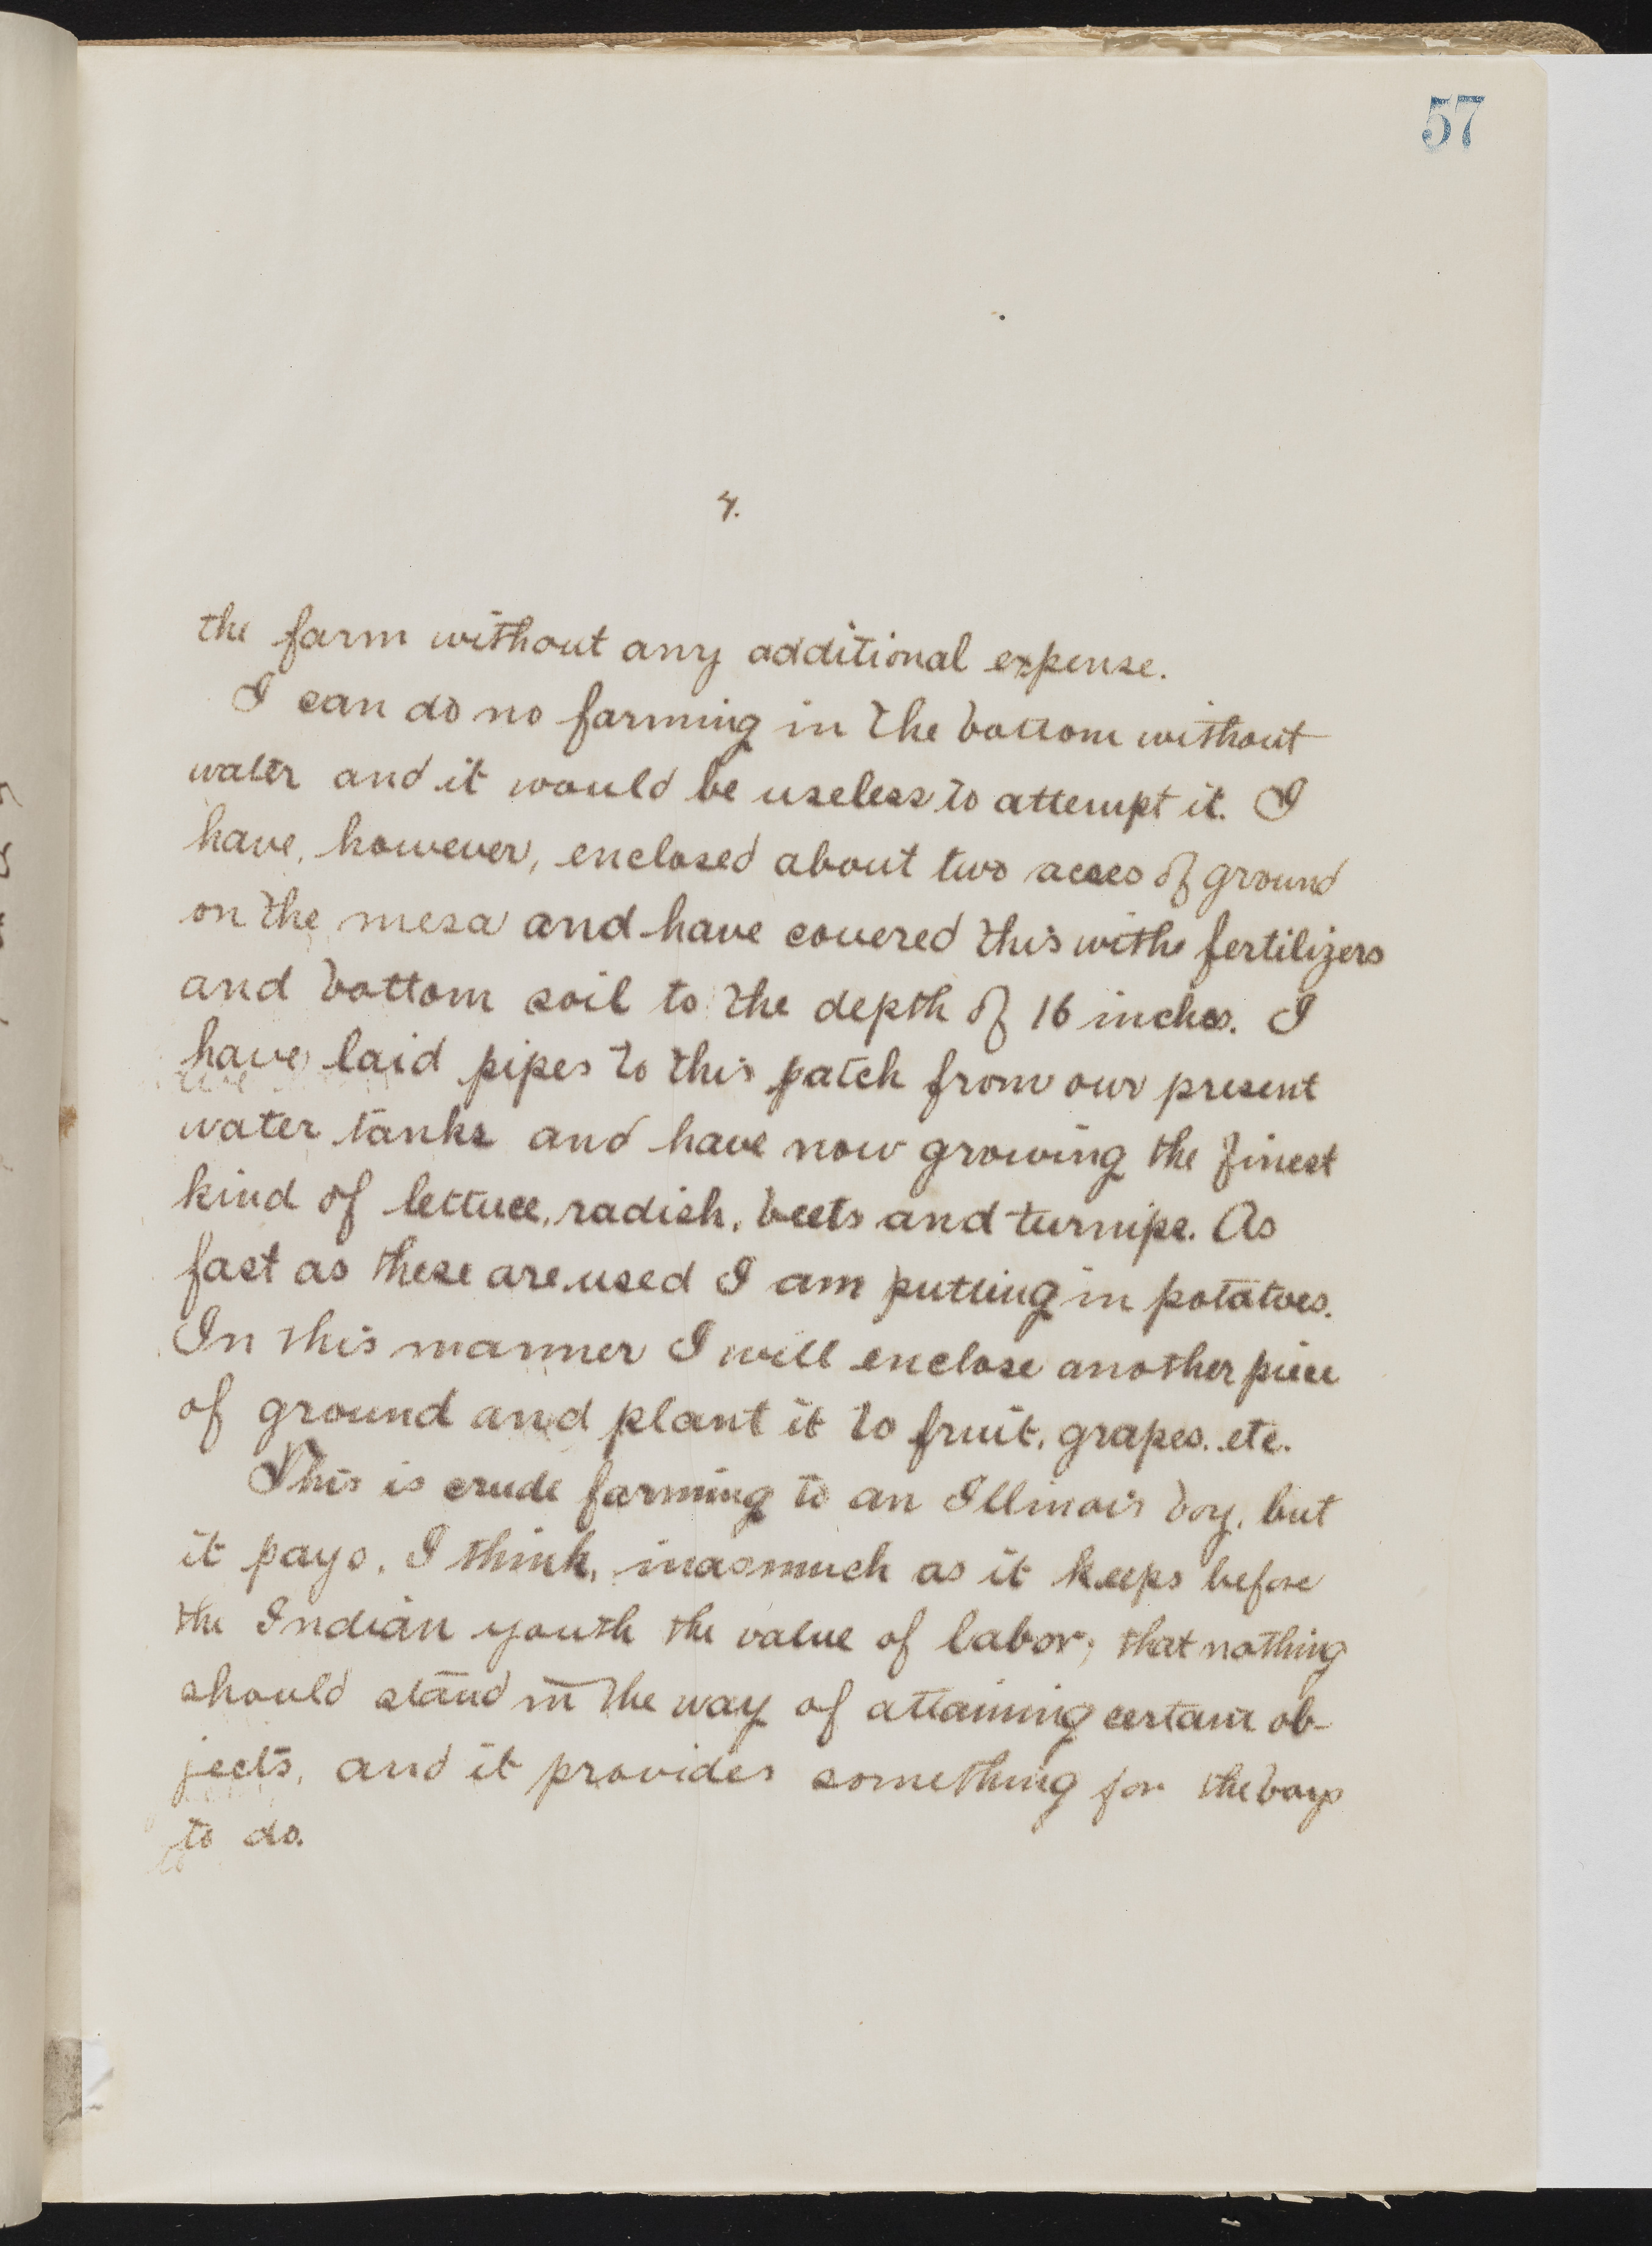 57
4.
the farm without any additional expense.
I can do no farming in the bottom without
water and it would be useless to attempt it. I
have, however, enclosed about two acres of ground
on the mesa and have covered this with fertilizers
and bottom soil to the depth of 16 inches. I
have laid pipes to this patch from our present
water tanks and have now growing the finest
kind of lettuce, radish, beets and turnips. As
fast as these are used I am putting in potatoes.
In this manner I will enclose another piece
of ground and plant it to fruit, grapes, etc.
This is crude farming to an Illinois boy, but
it pays, I think, inasmuch as it keeps before
the Indian youth the value of labor; that nothing
should stand in the way of attaining certain ob-
jects, and it provides something for the boys
to do.